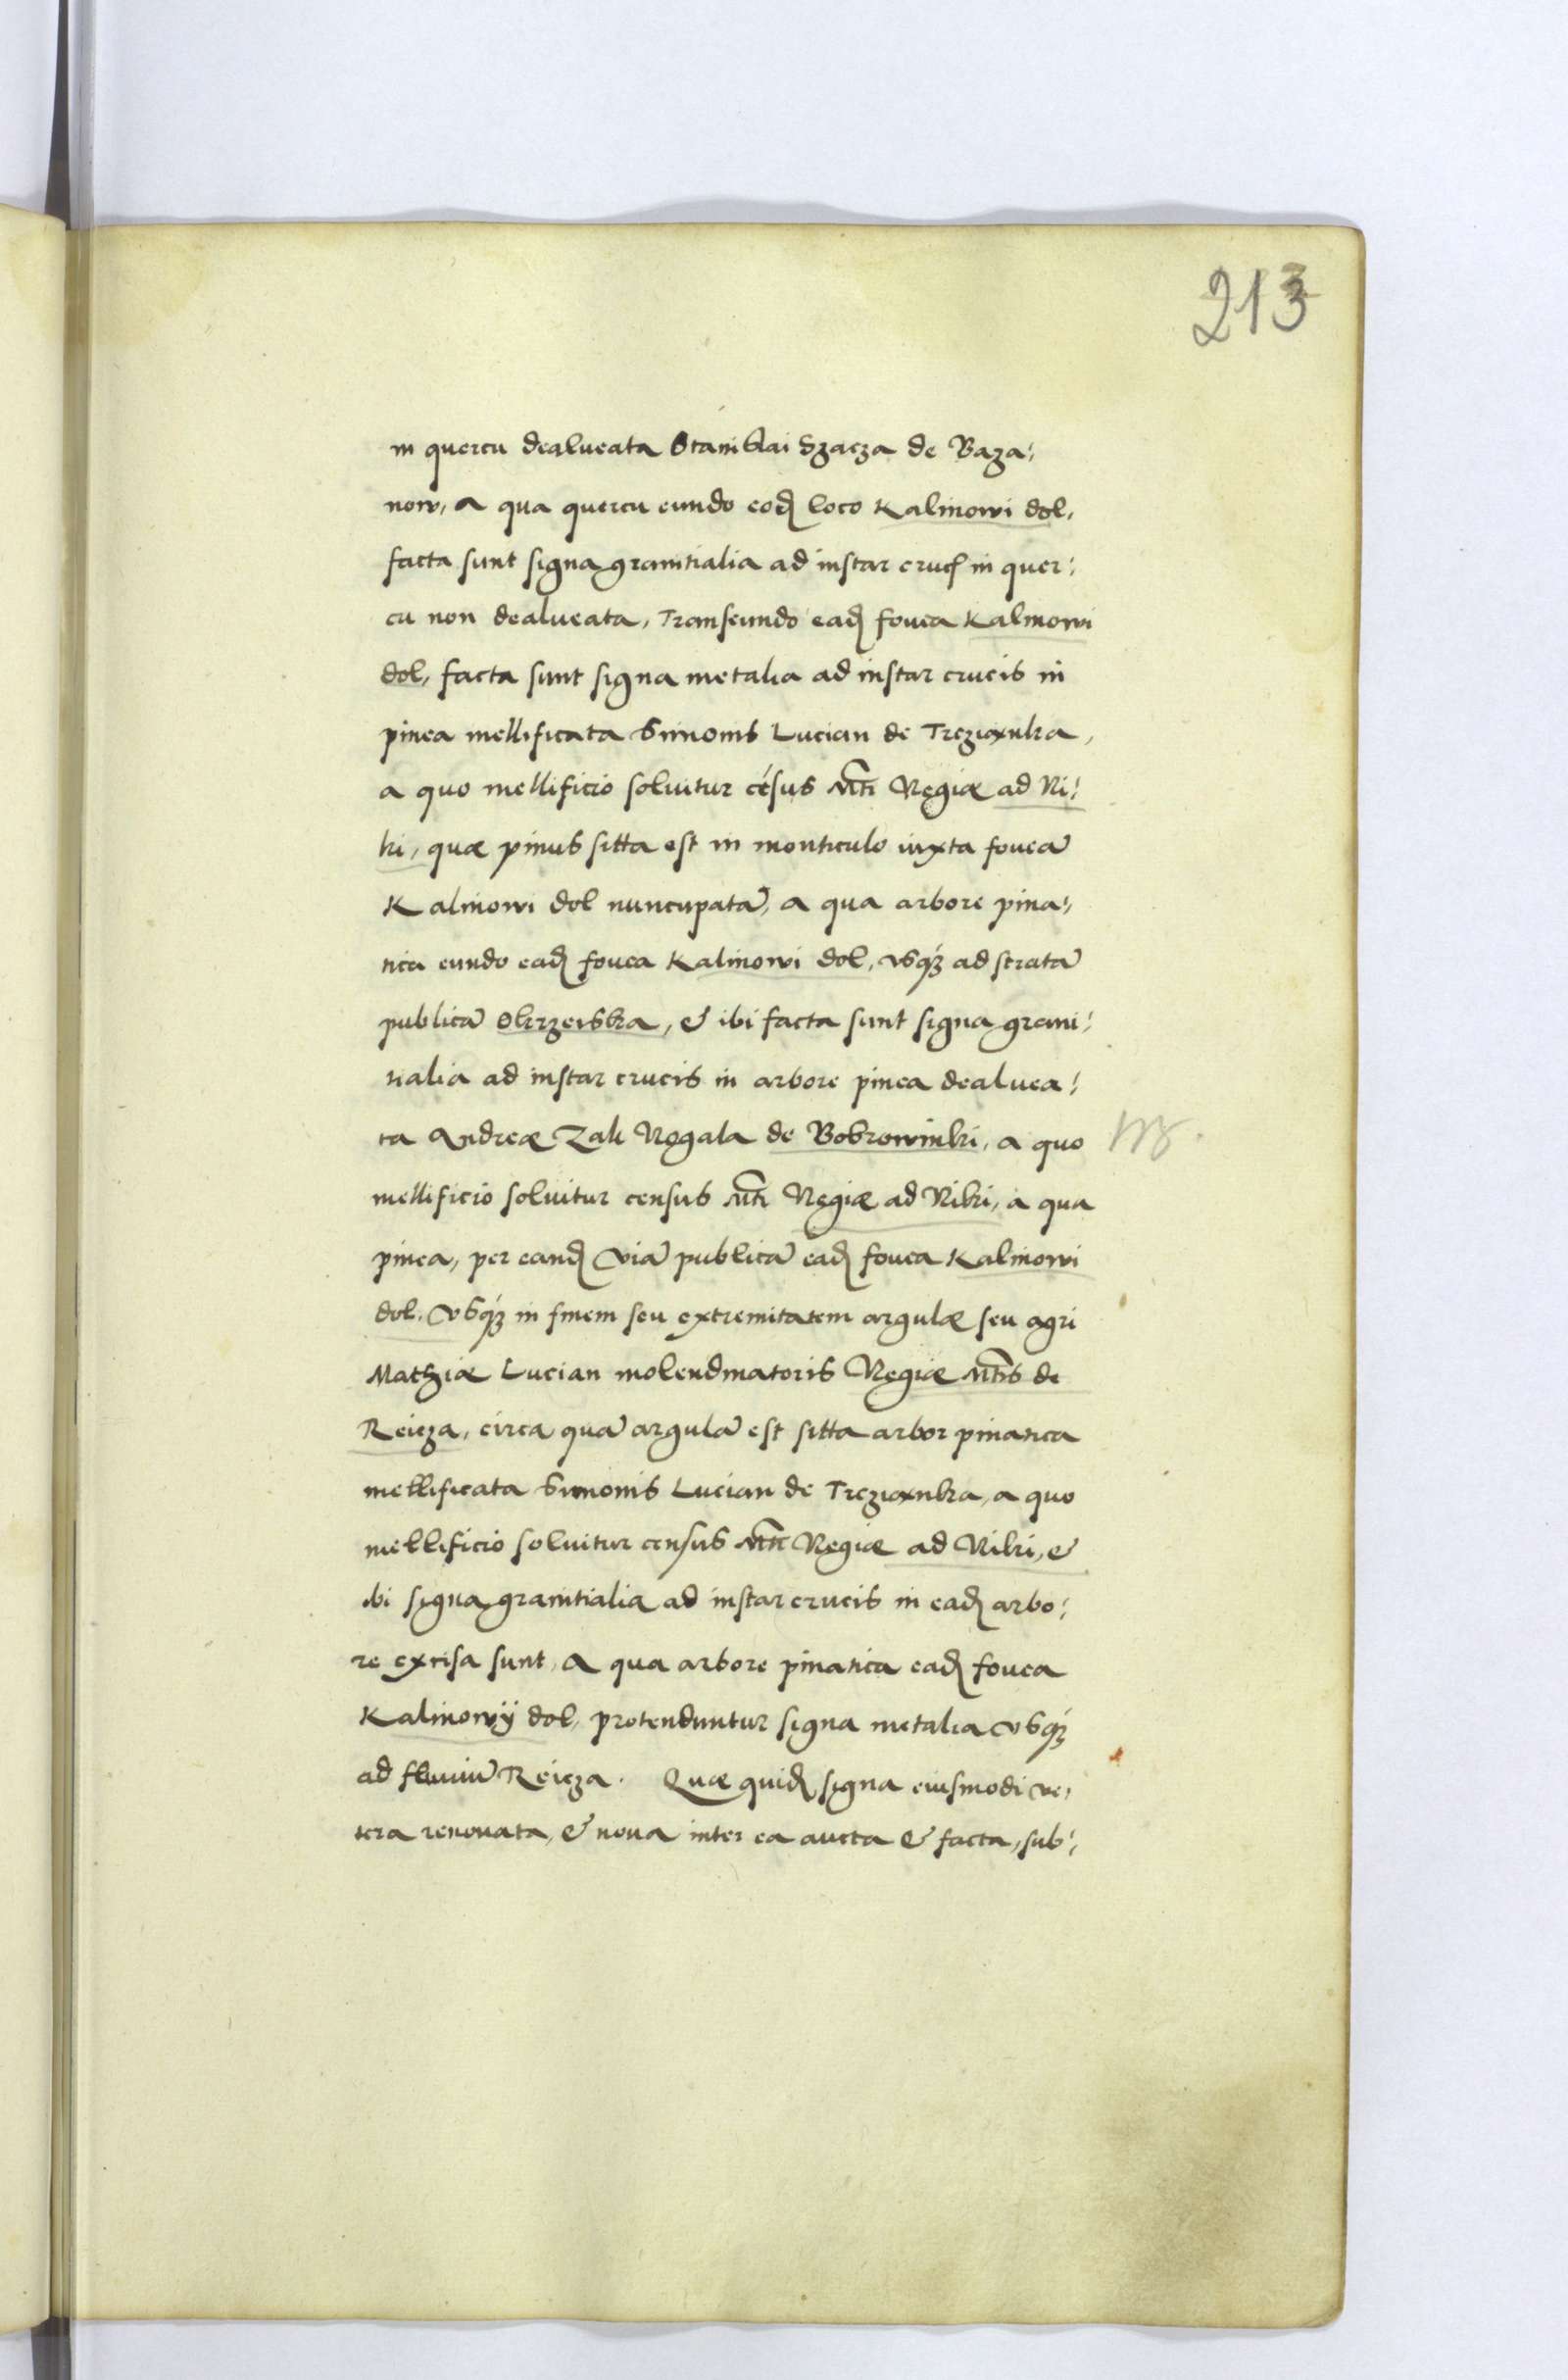 213
in quercu dealueata Stanislai Szacza de Baza⸗
now, a qua quercu eundo eod. loco Kalinowi dol,
facta sunt signa granitialia ad instar cruc. in quer⸗
cu non dealueata, Transeundo ead. fouea Kalinowi
dol, facta sunt signa metalia ad instar crucis in
pinea mellificata Simonis Lucian de
a quo mellificio soluitur cēsus Mti Regiæ ad Ni⸗
ki, quæ pinus sitta est in monticulo iuxta foueā
Kalinowi dol nuncupatā, a qua arbore pina⸗
tica eundo ead. fouea Kalinowi dol, vsq́ꝫ ad stratā
publicā Okrzeiska, & ibi facta sunt signa grani⸗
tialia ad instar crucis in arbore pinea dealuea⸗
ta Andreæ Zak Rogala de Bobrowinki, a quo
mellificio soluitur census Mti Regiæ ad Niki, a qua
pinea, per eand. viā publicā ead. fouea Kalinowi
dol. vsq́ꝫ in finem seu extremitatem argulæ seu agri
Mathiæ Lucian molendinatoris Regiæ Mtis de
Reicza, circa quā argulā est sitta arbor pinatica
mellificata Simonis Lucian de a quo
mellificio soluitur census Mti Regiæ ad Niki, &
ibi signa granitialia ad instar crucis in ead. arbo⸗
re excisa sunt, a qua arbore pinatica ead. fouea
Kalinowÿ dol, protenduntur signa metalia vsq́ꝫ
ad fluuiū Reicza. Quæ quid. signa eiusmodi ve⸗
tera renouata, & noua inter ea aucta & facta, sub⸗